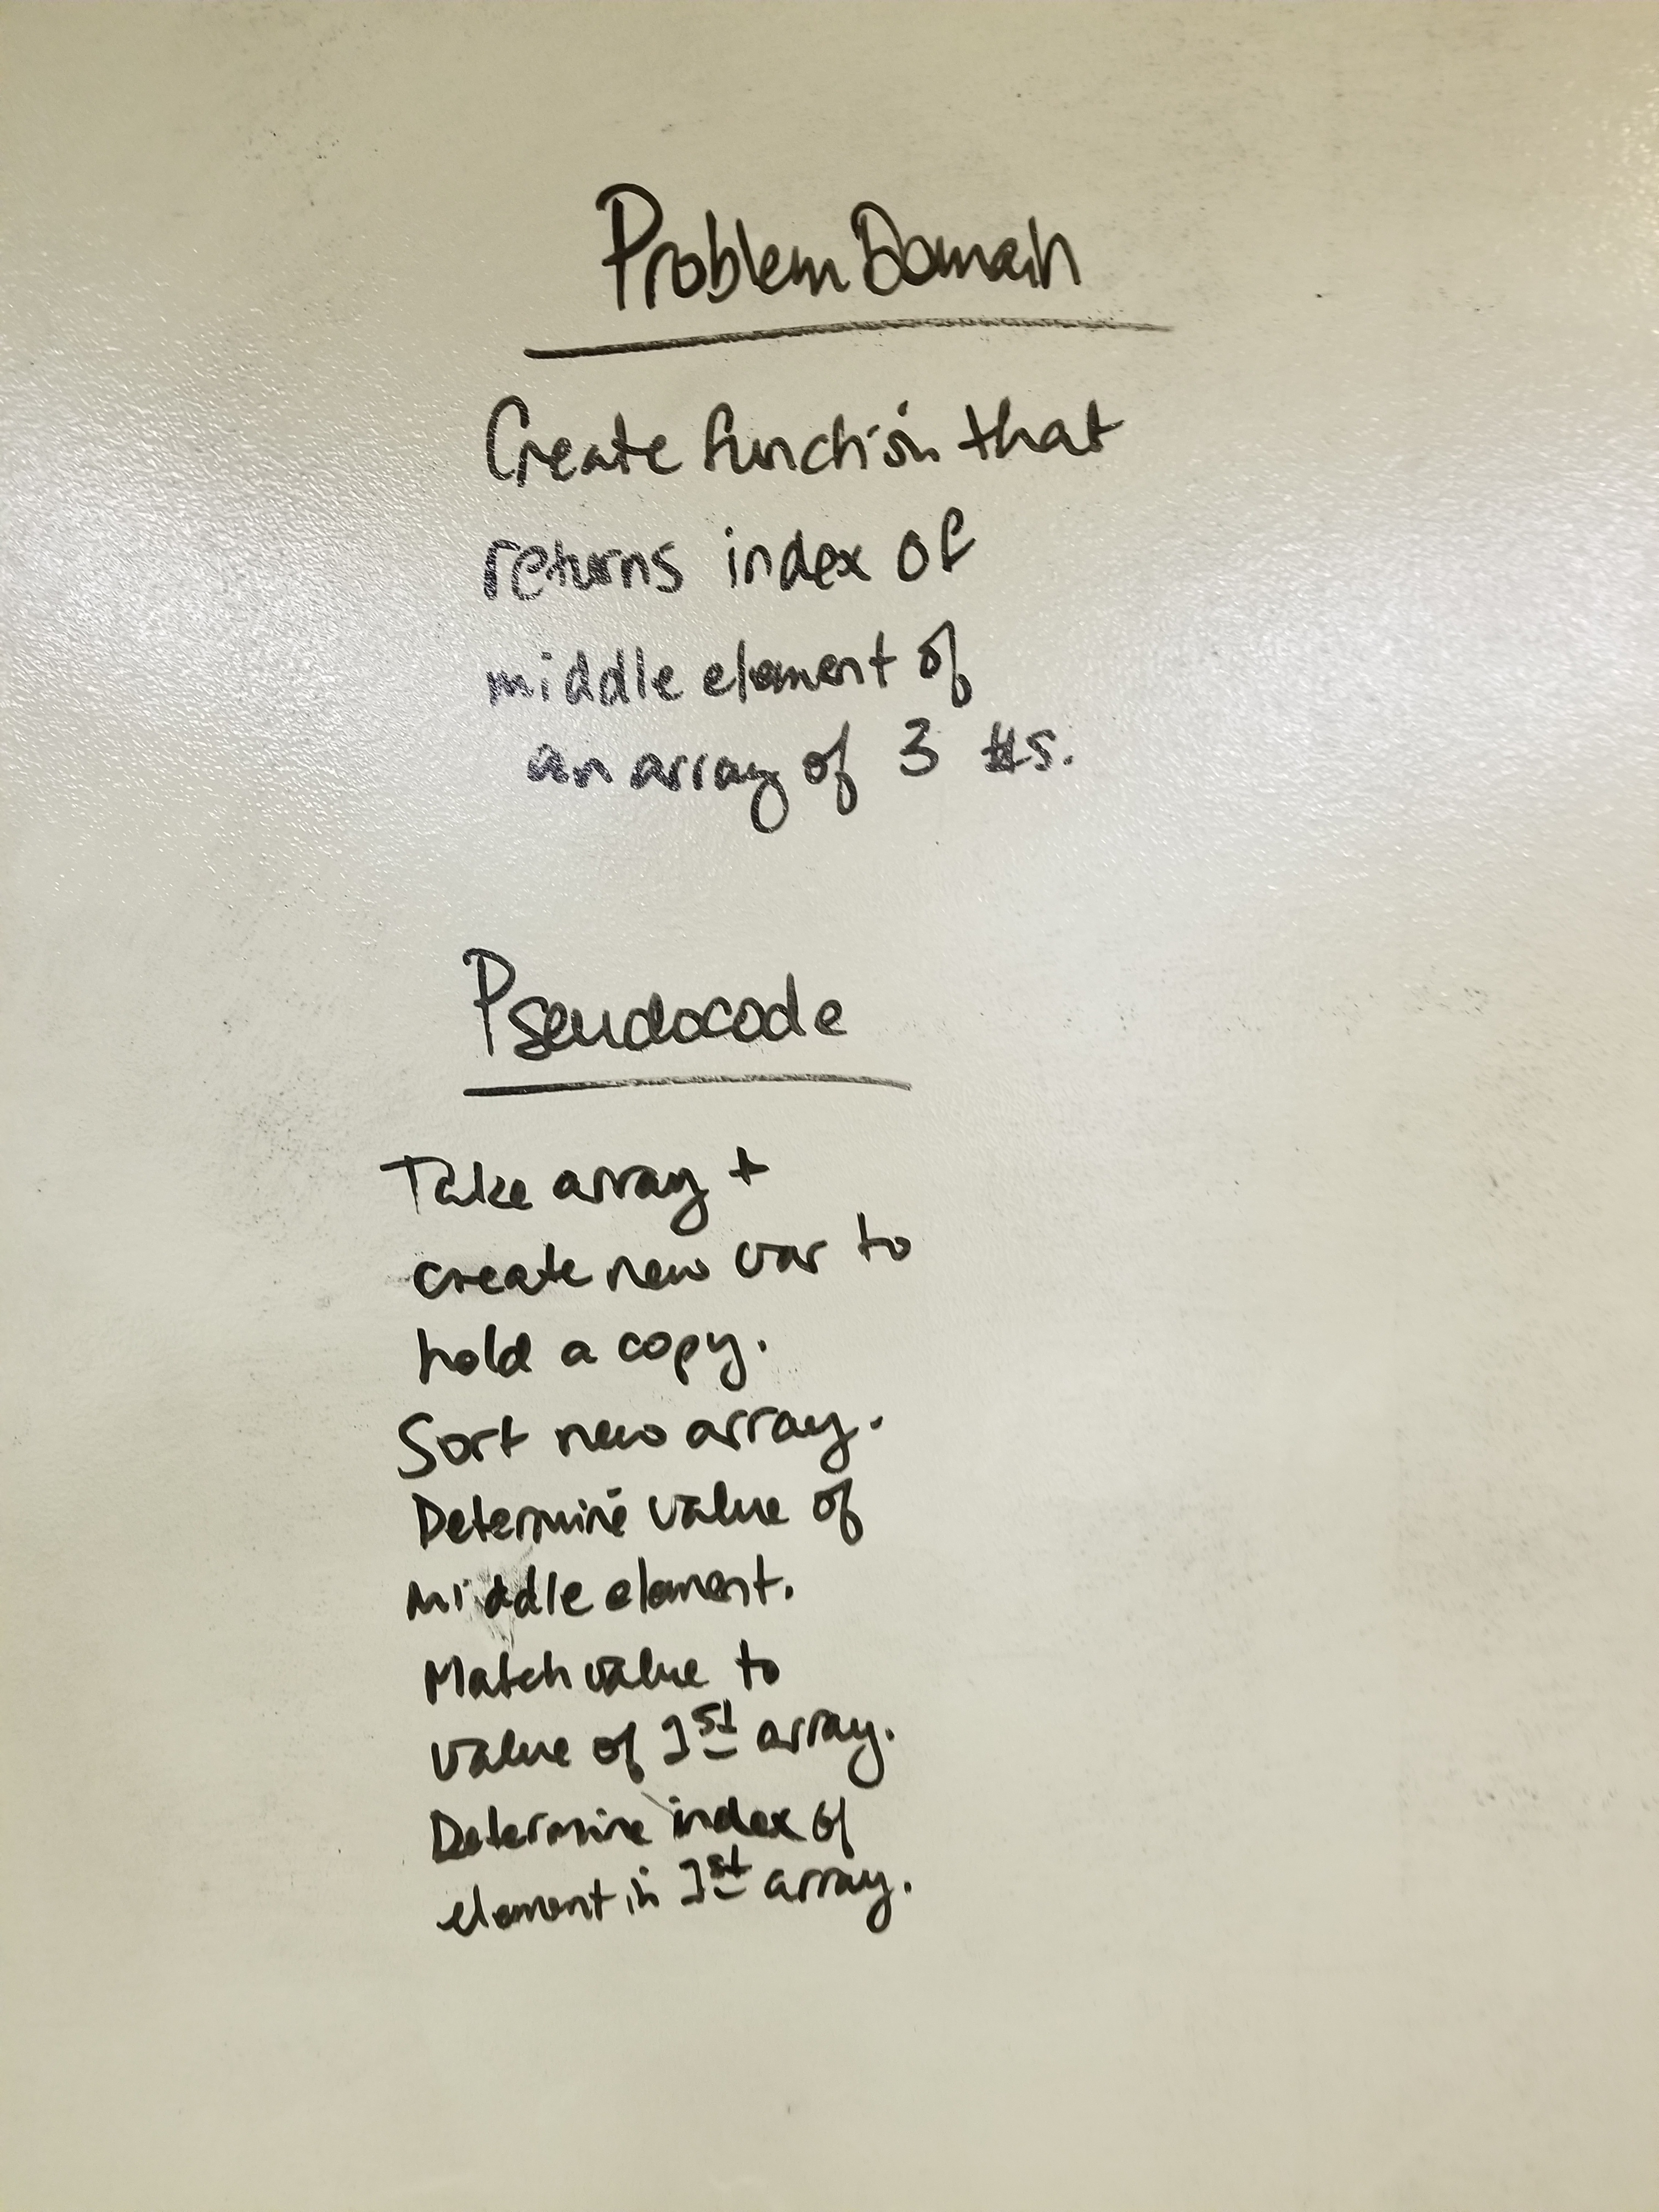 Problem Domain
Create function that
returns index of
middle element of
an array of 3 #s.
Pseudocode
Take array +
create new var to
hold a copy.
Sort new array.
Determine value of
middle element.
Match value to
value of 1st array.
Determine index of
element in 1st array.